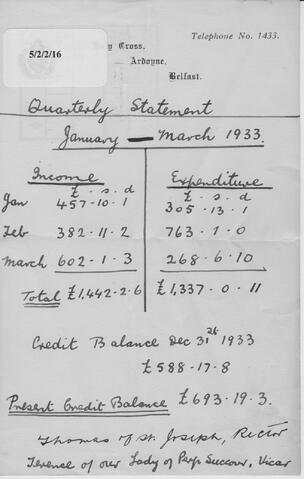 Telephone No. 1433.
5/2/2/16
y Cross,
Ardoyne,
Belfast.
Quarterly Statement
January — March 1933.
Income Expenditure
£ . s . d £ . s . d
Jan 457 - 10 . 1 305 . 13 . 1
Feb 382 . 11 . 2 763 . 1 . 0
March 602 . 1 . 3 268 . 6 . 10
Total £1,442 - 2 . 6 £1,337 . 0 . 11
Credit Balance Dec 31st 1933
£588 - 17 . 8
Present Credit Balance £693 . 19 . 3.
Thomas of St. Joseph, Rector
Terence of our Lady of Perp Succour, Vicar